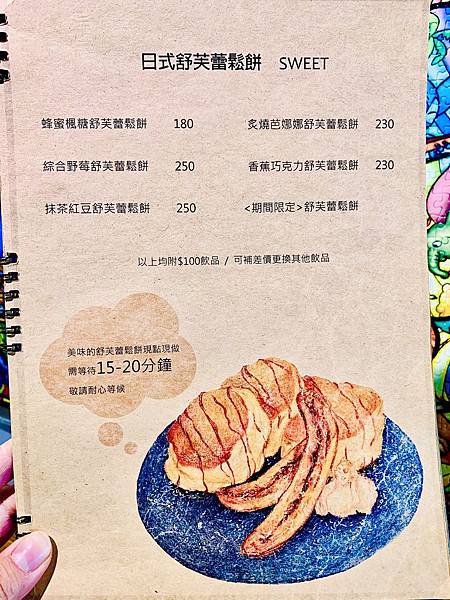 日式舒芙蕾鬆餅 SWEET
蜂蜜楓糖舒芙蕾鬆餅 180 炙燒芭娜娜舒芙蕾鬆餅 230
綜合野莓舒芙蕾鬆餅 250 香蕉巧克力舒芙蕾鬆餅 230
抹茶紅豆舒芙蕾鬆餅 250 <期間限定>舒芙蕾鬆餅
以上均附$100飲品 / 可補差價更換其他飲品
美味的舒芙蕾鬆餅現點現做
需等待15-20分鐘
敬請耐心等候